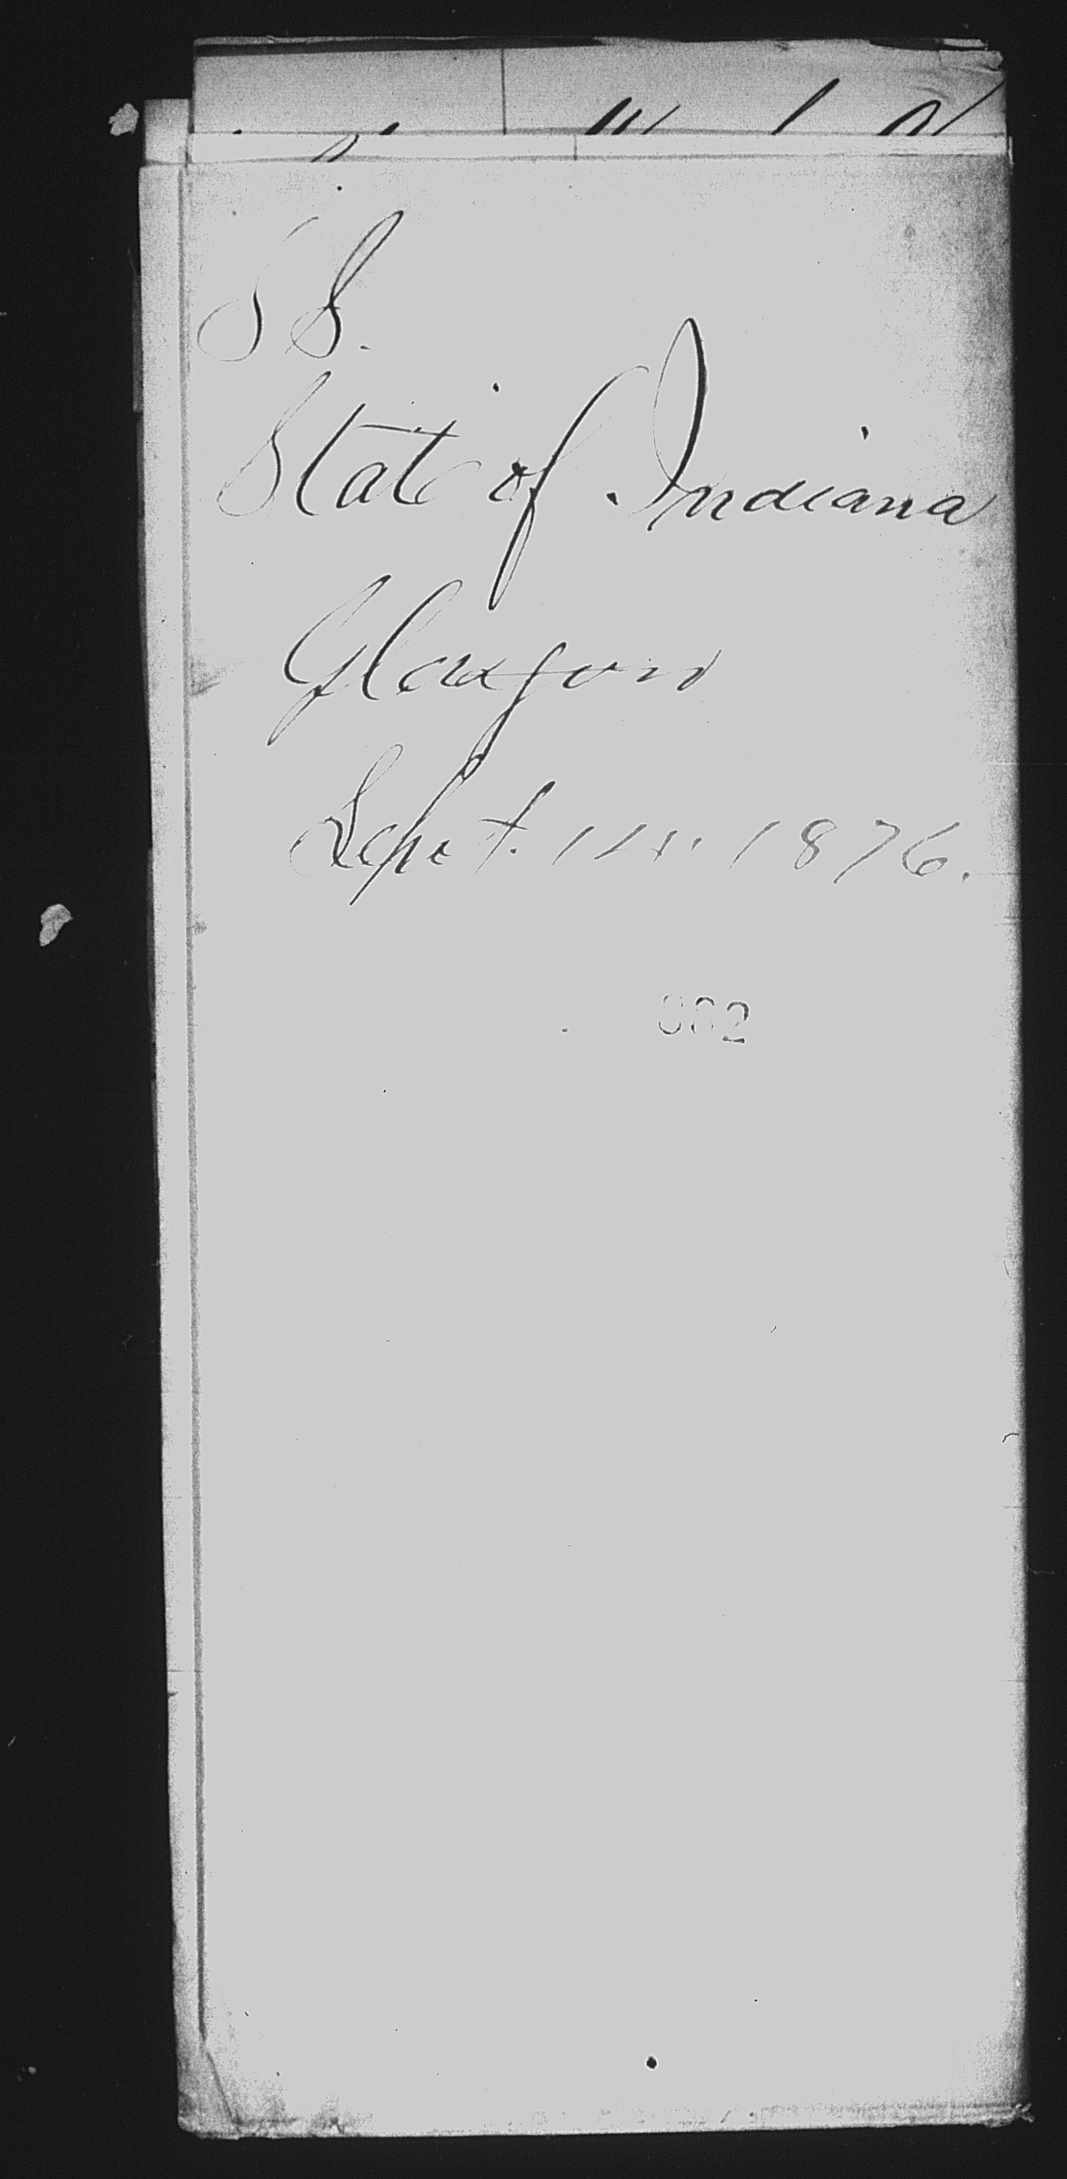 S S.
State of Indiana
Glasgow
Sept. 11" 1876.
882